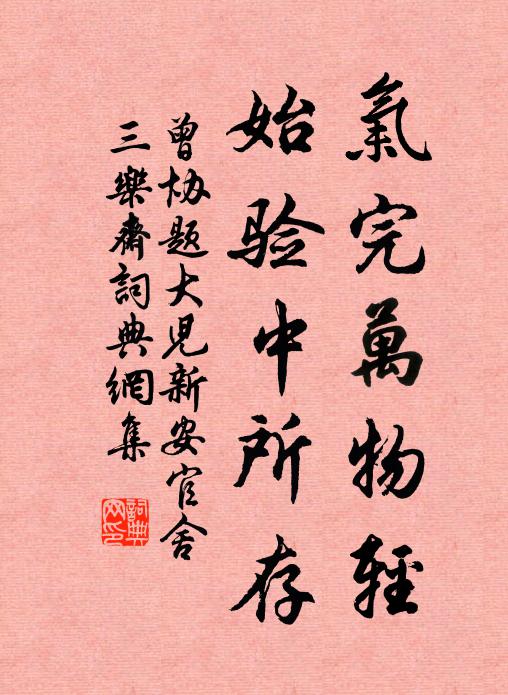 氣完萬物輕
始验中所存
曾协題大兒新安官舍
三樂齋詞典網集
詞典网印